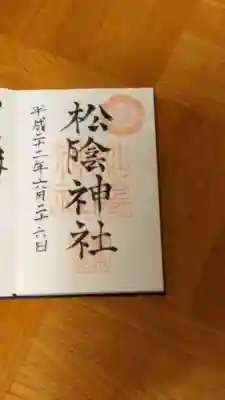 松陰神社
平成二十二年六月二十六日